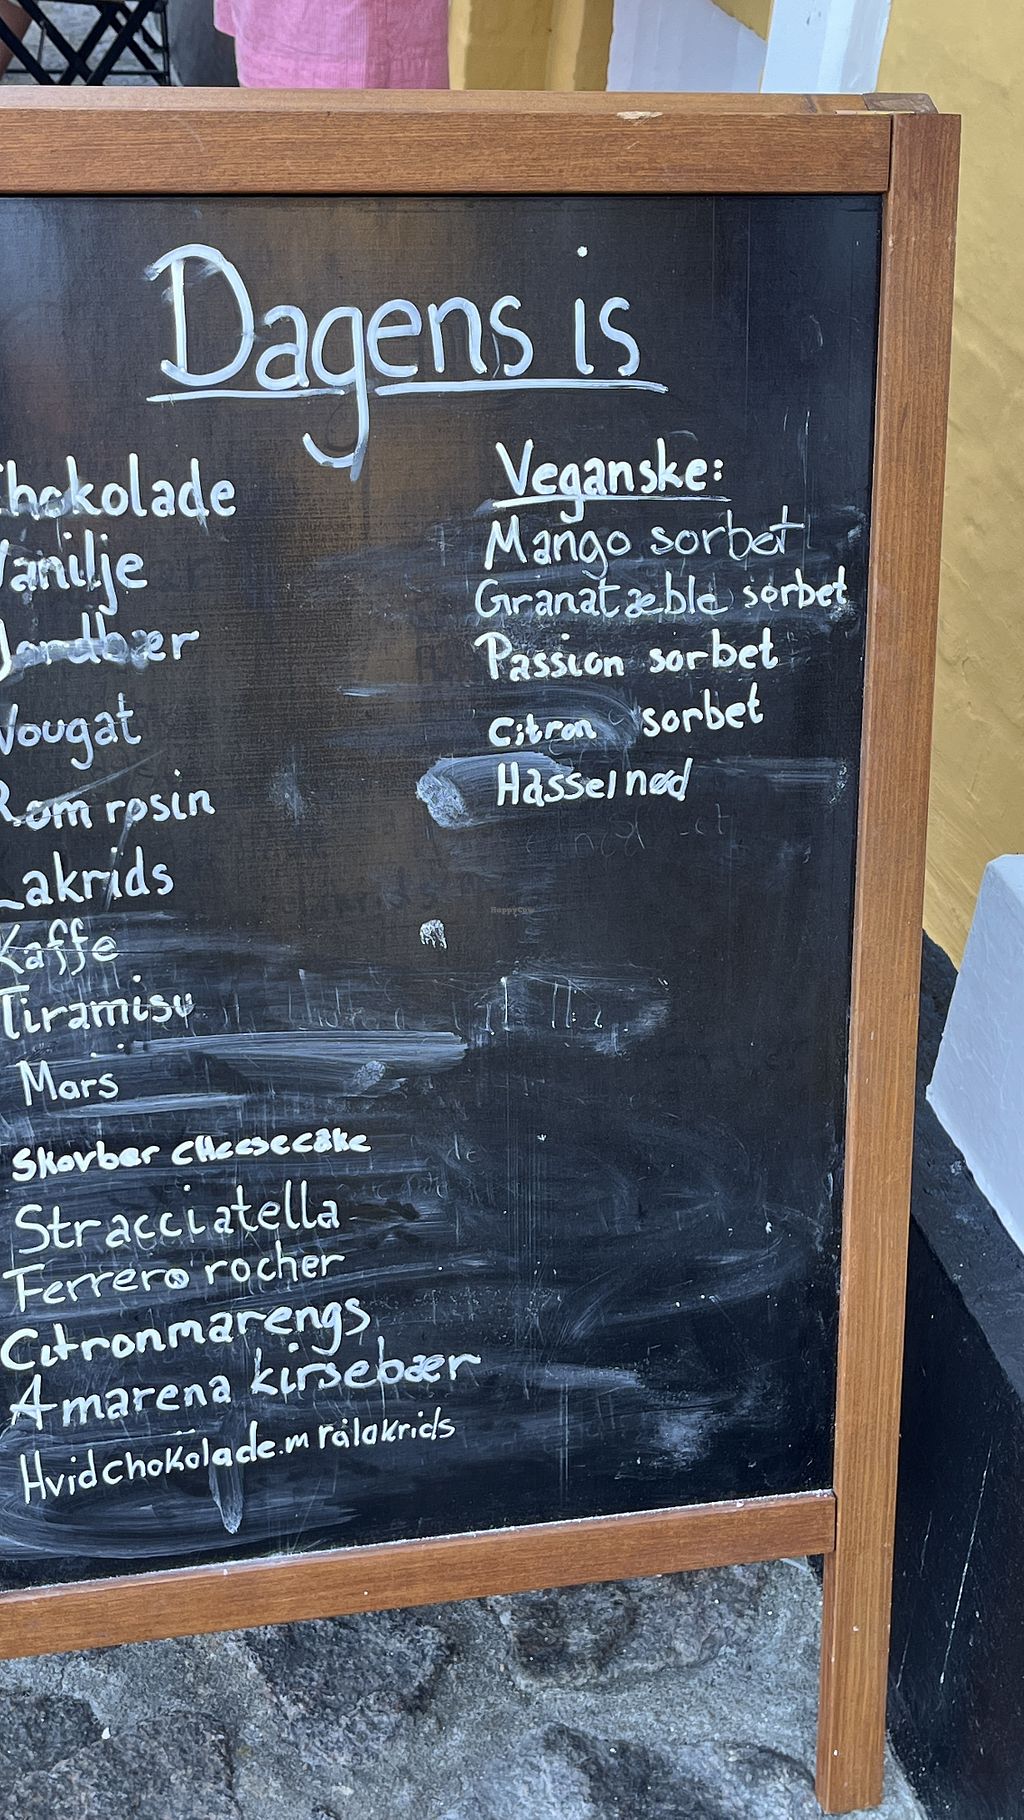 Dagens is
Chokolade
Vanilje
Jordbær
Nougat
Rom rosin
Lakrids
Kaffe
Tiramisu
Mars
Skovbær cheesecake
Stracciatella
Ferrero rocher
Citronmarengs
Amarena kirsebær
Hvidchokolade.m rålakrids
Veganske:
Mango sorbet
Granatæble sorbet
Passion sorbet
Citron sorbet
Hasselnød
HappyCow